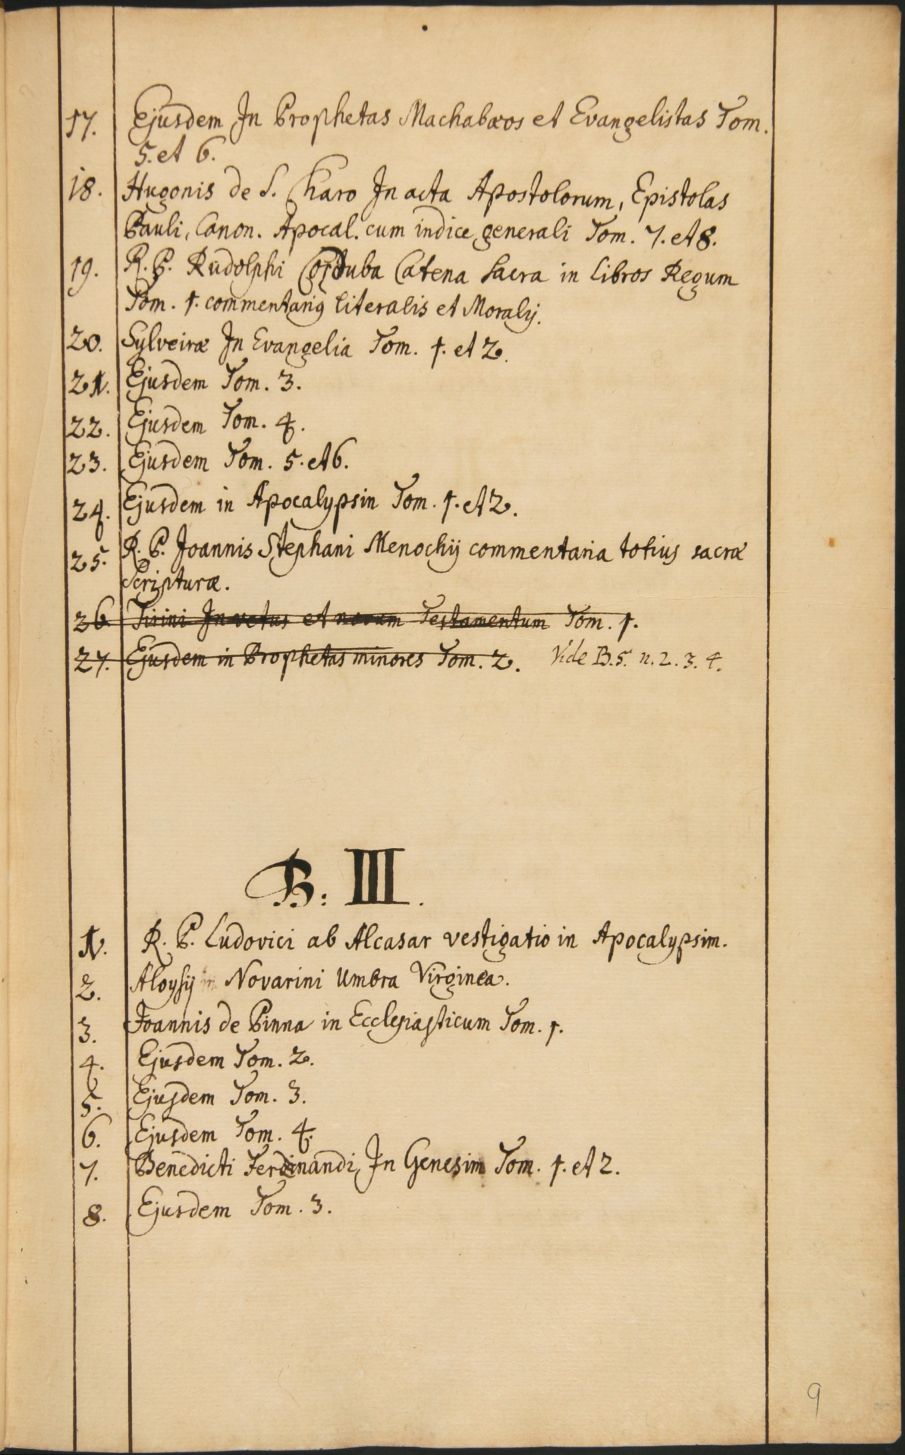 17. Ejusdem In Prophetas Machabæos et Evangelistas Tom.
5. et 6.
18. Hugonis de S. Charo In acta Apostolorum, Epistolas
Pauli, Canon. Apocal. cum indice generali Tom. 7. et 8.
19. R. P. Rudolphi Corduba Catena sacra in libros Regum
Tom. 1. commentariq literalis et Moralij.
20. Sylveiræ In Evangelia Tom. 1. et 2.
21. Ejusdem Tom. 3.
22. Ejusdem Tom. 4.
23. Ejusdem Tom. 5. et 6.
24. Ejusdem in Apocalypsin Tom. 1. et 2.
25. R. P. Joannis Stephani Menochij commentaria totius sacræ
Scripturæ.
26. Tirini In vetus et novum Testamentum Tom. 1.
27. Ejusdem in Prophetas minores Tom. 2. Vide B. 5. n. 2. 3. 4.
B: III.
1. R. P. Ludovici ab Alcasar vestigatio in Apocalypsim.
2. Aloysij Novarini Umbra Virginea.
3. Joannis de Pinna in Ecclesiasticum Tom. 1.
4. Ejusdem Tom. 2.
5. Ejusdem Tom. 3.
6. Ejusdem Tom. 4.
7. Benedicti Ferdinandi, In Genesim Tom. 1. et 2.
8. Ejusdem Tom. 3.
9